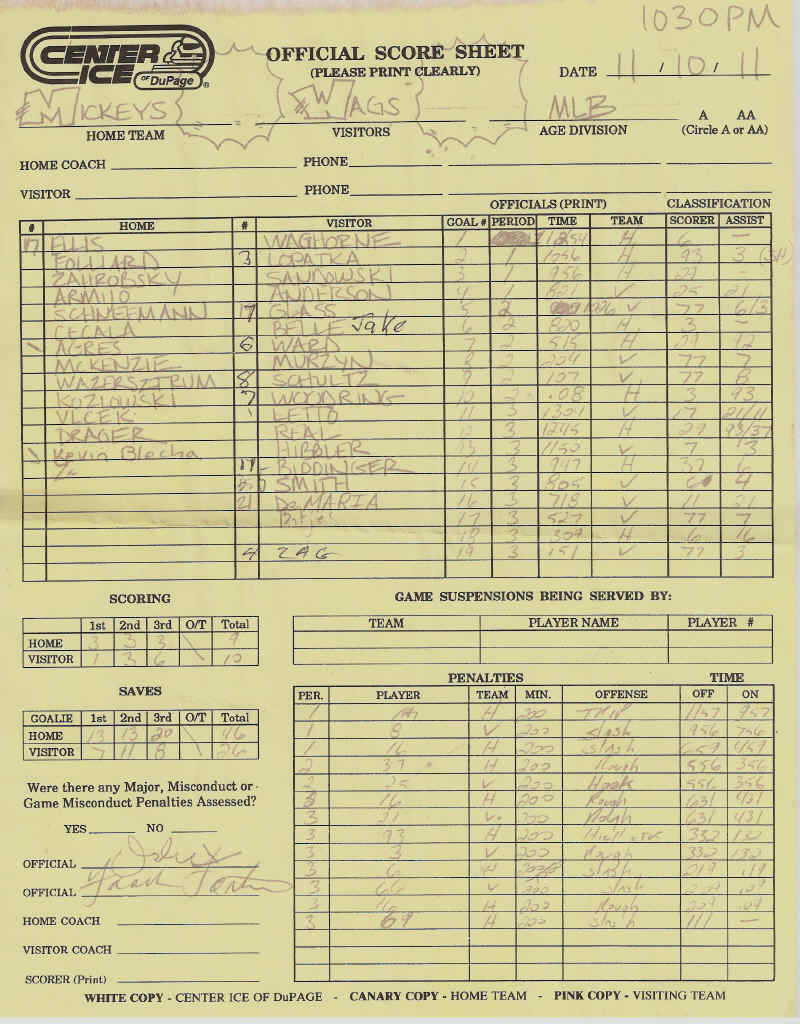 1030 PM
CENTER ICE OF DuPage ®
OFFICIAL SCORE SHEET
(PLEASE PRINT CLEARLY)
DATE 11 / 10 / 11
MICKEYS WAGS MLB A AA
HOME TEAM VISITORS AGE DIVISION (Circle A or AA)
HOME COACH PHONE
VISITOR PHONE
OFFICIALS (PRINT) CLASSIFICATION
# HOME # VISITOR GOAL # PERIOD TIME TEAM SCORER ASSIST
17 ELLIS WAGHORNE 1 1254 H 6 —
FOLLIARD 3 LOPATKA 2 1 1056 H 93 3 (SH)
ZAHROBSKY SANDOWSKI 3 1 956 H 29 -
ARMIJO ANDERSON 4 1 821 V 25 21
SCHNEEMANN 17 GLASS 5 2 1026 V 77 6/3
CECALA BELLE Jake 6 2 800 H 3 -
AGRES 6 WARD 7 2 515 H 29 12
MCKENZIE MURZYN 8 2 204 V 77 7
WAZERSZTRUM 8 SCHULTZ 9 2 107 V 77 8
KOZLOWSKI 7 WOODRING 10 2 .08 H 3 93
VLCEK LETTO 11 3 1304 V 17 21/11
DRAGER REAL 12 3 1245 H 29 93/37
Kevin Blecha HIBBLER 13 3 1150 V 7 3
17 RIDDINGER 14 3 947 H 37 6
SMITH 15 3 805 V 6 4
21 DeMARIA 16 3 718 V 11 21
17 3 527 V 77 7
18 3 309 H 6 16
4 ZAG 19 3 151 V 77 3
SCORING
1st 2nd 3rd O/T Total
HOME 3 3 3 \ 9
VISITOR 1 3 6 \ 10
SAVES
GOALIE 1st 2nd 3rd O/T Total
HOME 13 13 20 \ 46
VISITOR 7 11 8 \ 26
Were there any Major, Misconduct or
Game Misconduct Penalties Assessed?
YES NO
OFFICIAL
OFFICIAL
HOME COACH
VISITOR COACH
SCORER (Print)
GAME SUSPENSIONS BEING SERVED BY:
TEAM PLAYER NAME PLAYER #
PENALTIES TIME
PER. PLAYER TEAM MIN. OFFENSE OFF ON
1 H 200 TRIP 1157 957
1 8 V 200 Slash 956 756
1 16 H 200 Slash 659 459
2 37 H 200 Rough 556 356
2 25 V 200 Hook 556 356
3 16 H 200 Rough 631 431
3 21 V 200 Rough 631 431
3 93 H 200 High stk 332 132
3 3 V 200 Rough 332 132
3 6 H Slash 219 .19
3 66 V 200 Slash
3 16 H 200 Rough 209 .09
3 69 H 200 Slash 111 —
WHITE COPY - CENTER ICE OF DuPAGE - CANARY COPY - HOME TEAM - PINK COPY - VISITING TEAM